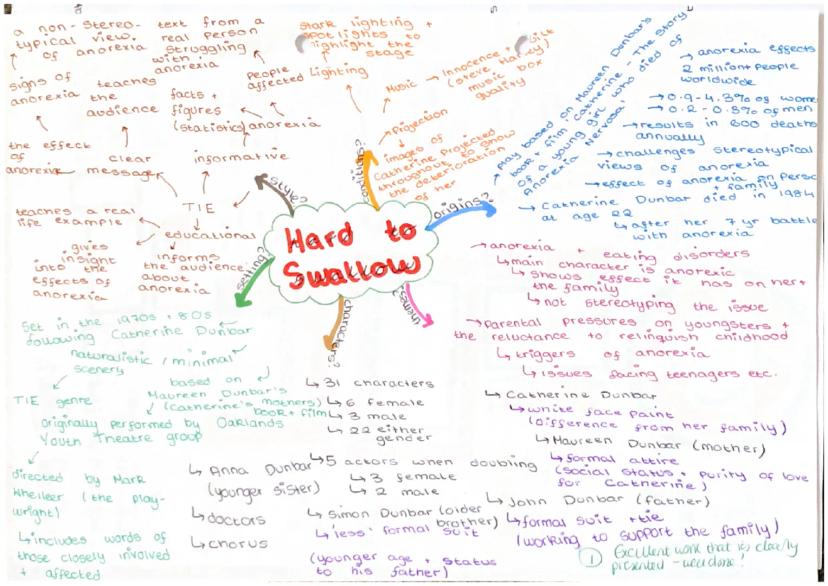 Hard to
Swallow
style?
a non-stereo-
typical view
of anorexia
text from a
real person
struggling
with
anorexia
signs of
anorexia
teaches
the
audience
facts +
figures
(statistics)
People
affected
anorexia
the effect
of
anorexia
clear
message
informative
TIE
teaches a real
life example
educational
gives
insight
into the
effects of
anorexia
informs
the audience
about
anorexia
stark lighting +
spotlights to
highlight the
stage
Lighting
Music → Innocence +
(Steve
music box
quality
Projection
images of
Catherine projected
throughout to show
the deterioration
of her
origins?
Play based on Maureen Dunbar's
book + film Catherine - The Story
of a young girl who died of
Anorexia Nervosa'
→ anorexia effects
2 million people
worldwide
→ 0.9-4.3% of wome
→ 0.2-0.5% of men
→ results in 600 deaths
annually
→ challenges stereotypical
views of anorexia
→ effect of anorexia on Perso
+ family
→ Catherine Dunbar died in 1984
at age 22
↳ after her 7 yr battle
with anorexia
themes?
→ anorexia + eating disorders
↳ main character is anorexic
↳ shows effect it has on her +
the family
↳ not stereotyping the issue
→ Parental pressures on youngsters +
the reluctance to relinquish childhood
↳ triggers of anorexia
↳ issues facing teenagers etc.
setting?
Set in the 1970s + 80s
following Catherine Dunbar
naturalistic / minimal
scenery
TIE genre
based on
Maureen Dunbar's
(Catherine's mothers)
book + film
originally performed by Oaklands
Youth Theatre group
directed by Mark
Wheeller (the play-
wright)
↳ includes words of
those closely involved
+ affected
characters?
↳ 31 characters
↳ 6 female
↳ 3 male
↳ 22 either
gender
↳ 5 actors when doubling
↳ 3 female
↳ 2 male
↳ Anna Dunbar
(younger sister)
↳ doctors
↳ chorus
↳ Simon Dunbar (older
brother)
↳ 'less' formal suit
(younger age + status
to his father)
↳ Catherine Dunbar
↳ white face paint
(difference from her family)
↳ Maureen Dunbar (mother)
↳ formal attire
(social status + purity of love
for Catherine)
↳ John Dunbar (father)
↳ formal suit + tie
(working to support the family)
1 Excellent work that is clearly
presented - well done!